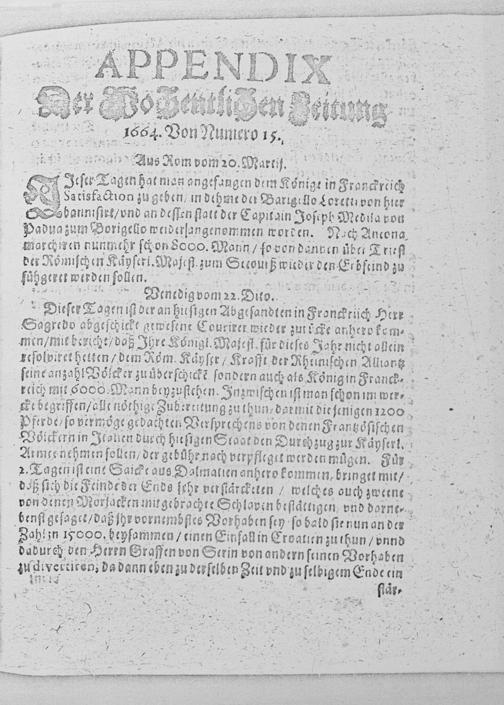 APPENDIX
Der Wochentlichen Zeitung
1664. Von Numero 15.
Aus Rom vom 20. Martij.
Dieser Tagen hat man angefangen dem Könige in Franckreich
Satisfaction zu geben, in dehme der Barigello Loretti von hier
bannisirt/und an dessen statt der Capitain Joseph Medila von
Padua zum Borigello wieder angenommen worden. Nach Ancona
marchiren nunmehr schon 8000. Mann/ so von dannen über Triest
der Römischen Käyserl. Majest. zum Secourß wieder den Erbfeind zu
führet werden sollen.
Venedig vom 22. Dito.
Dieser Tagen ist der an hiesigen Abgesandten in Franckreich Herr
Sagredo abgeschickt gewesene Courirer wieder zurücke anhero kom-
men/mit bericht/daß Ihre Königl. Majest. für dieses Jahr nicht allein
resolviret hetten/ dem Röm. Käyser/ Krafft der Rheinischen Alliantz
seine anzahl Völcker zu überschicken sondern auch als König in Franck-
reich mit 6000. Mann beyzustehen. Inzwischen ist man schon im wer-
cke begriffen/alle nöthige Zubereitung zu thun/ darmit die jenigen 1200
Pferde/ so vermöge gedachten Versprechens von denen Frantzösischen
Völckern in Italien durch hiesigen Staat den Durchzug zur Käyserl.
Armee nehmen sollen/ der gebühr nach verpfleget werden mügen. Für
2. Tagen ist eine Saicke aus Dalmatien anhero kommen, bringet mit/
daß sich die Feinde der Ends sehr verstärcketen / welches auch zweene
von denen Morlacken mitgebrachte Schlaven bestätigen, und darne-
benst gesaget/daß ihr vornembstes Vorhaben sey/ so bald sie nun an der
Zahl in 15000. beysammen/ einen Einfall in Croatien zu thun/ vnnd
dadurch den Herrn Graffen von Serin von andern seinen Vorhaben
zu divertiren; da dann eben zu derselben Zeit vnd zu selbigem Ende ein
stär-